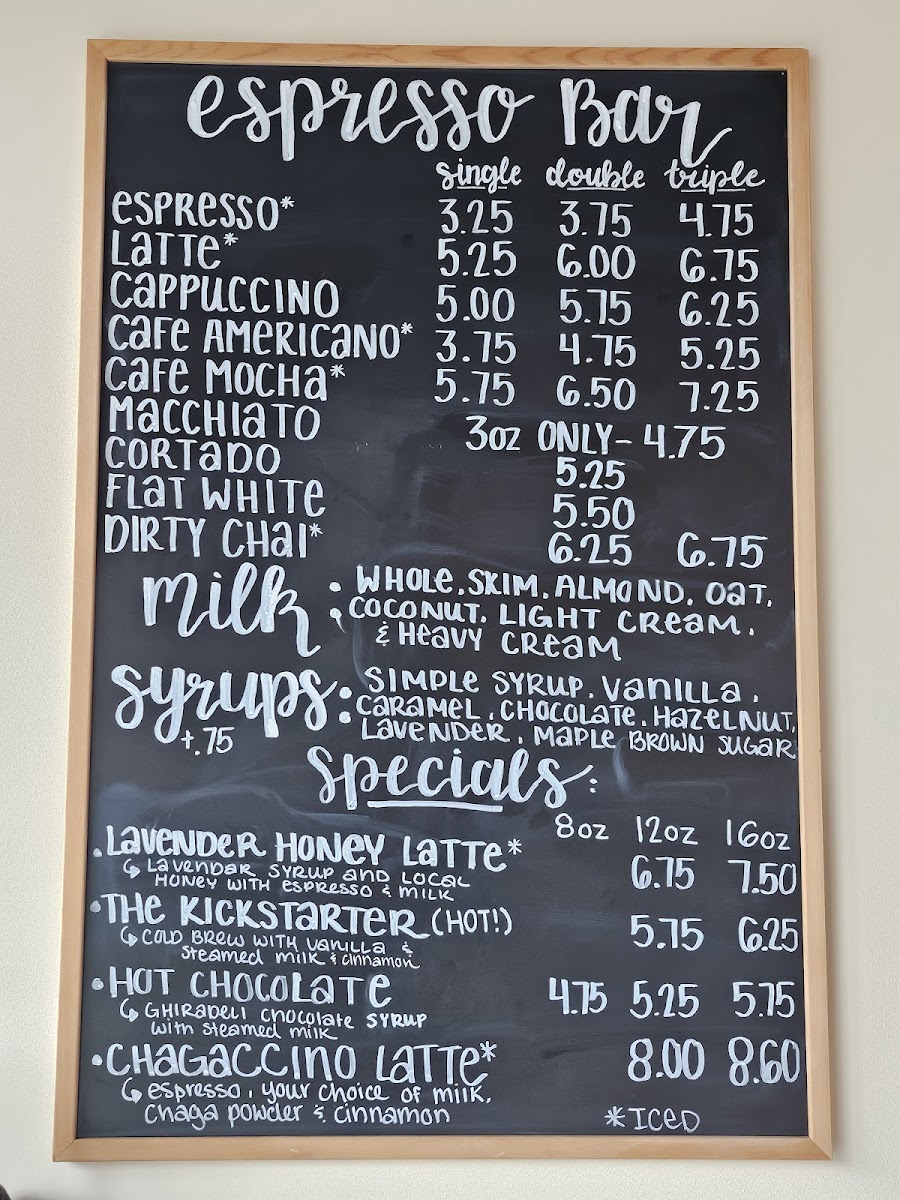 espresso Bar
single double triple
ESPRESSO* 3.25 3.75 4.75
LATTE* 5.25 6.00 6.75
CAPPUCCINO 5.00 5.75 6.25
CAFE AMERICANO* 3.75 4.75 5.25
CAFE MOCHA* 5.75 6.50 7.25
MACCHIATO 3oz ONLY- 4.75
CORTADO 5.25
FLAT WHITE 5.50
DIRTY CHAI* 6.25 6.75
milk: WHOLE, SKIM, ALMOND, OAT,
COCONUT, LIGHT CREAM,
& HEAVY CREAM
syrups: SIMPLE SYRUP, VANILLA,
CARAMEL, CHOCOLATE, HAZELNUT,
+.75 LAVENDER, MAPLE BROWN SUGAR
Specials:
8oz 12oz 16oz
• LAVENDER HONEY LATTE* 6.75 7.50
↳ LAVENDAR SYRUP AND LOCAL
HONEY WITH ESPRESSO & MILK
• THE KICKSTARTER (HOT!) 5.75 6.25
↳ COLD BREW WITH VANILLA &
Steamed milk & cinnamon
• HOT CHOCOLATE 4.75 5.25 5.75
↳ GHIRADELI chocolate SYRUP
with steamed milk
• CHAGACCINO LATTE* 8.00 8.60
↳ espresso, your choice of milk,
chaga powder & cinnamon
*ICED